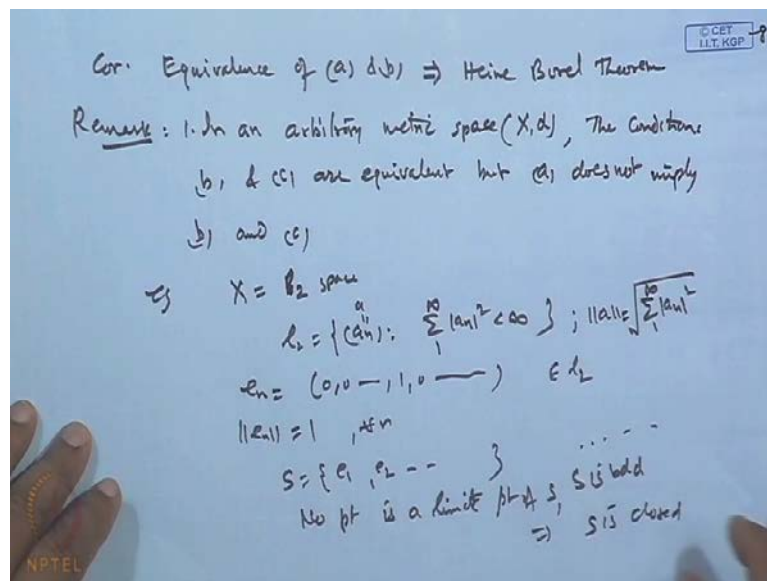 © CET
I.I.T. KGP
Cor. Equivalence of (a) & (b) ⇒ Heine Borel Theorem
Remark : 1. In an arbitrary metric space (X, d), The Conditions
(b) & (c) are equivalent but (a) does not imply
(b) and (c)
eg X = l₂ space
l₂ = { (aₙ) : ∑₁^∞ |aₙ|² < ∞ } ; ||a|| = √∑₁^∞ |aₙ|²
a
eₙ = (0, 0 —, 1, 0 ——) ∈ l₂
||eₙ|| = 1 , ∀ n
S = { e₁ , e₂ - - } ... - -
No pt is a limit pt of S, S is bdd
⇒ S is closed
NPTEL